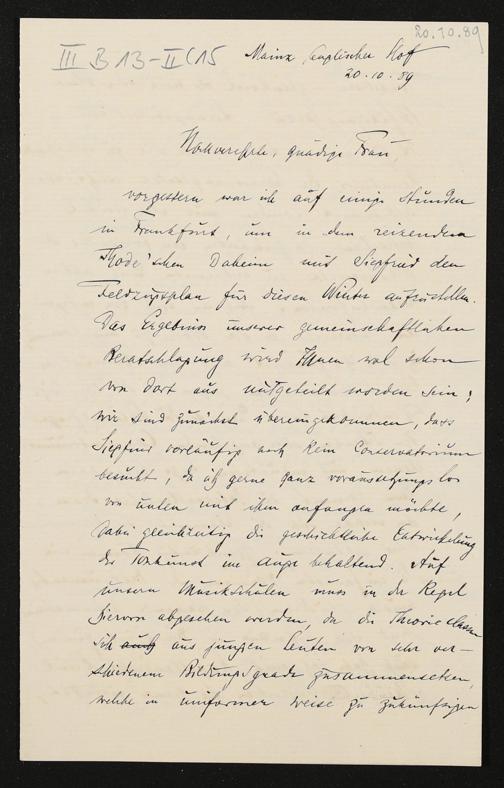 20.10.89
III B 13-II C 15
Mainz Englischer Hof
20.10.89
Hochverehrte, gnädige Frau,
vorgestern war ich auf einige Stunden
in Frankfurt, um in dem reizenden
Thode'schen Daheim mit Siegfried den
Feldzugsplan für diesen Winter aufzustellen.
Das Ergebniss unserer gemeinschaftlichen
Beratschlagung wird Ihnen wol schon
von dort aus mitgeteilt worden sein;
wir sind zunächst übereingekommen, dass
Siegfried vorläufig noch kein Conservatorium
besucht, da ich gerne ganz voraussetzungslos
von unten mit ihm anfangen möchte,
dabei gleichzeitig die geschichtliche Entwickelung
der Tonkunst im Auge behaltend. Auf
unsern Musikschulen muss in der Regel
hiervon abgesehen werden, da die Theorieclassen
sich auch aus jungen Leuten von sehr ver-
schiedenem Bildungsgrade zusammensetzen,
welche in uniformer Weise zu zukünftigen